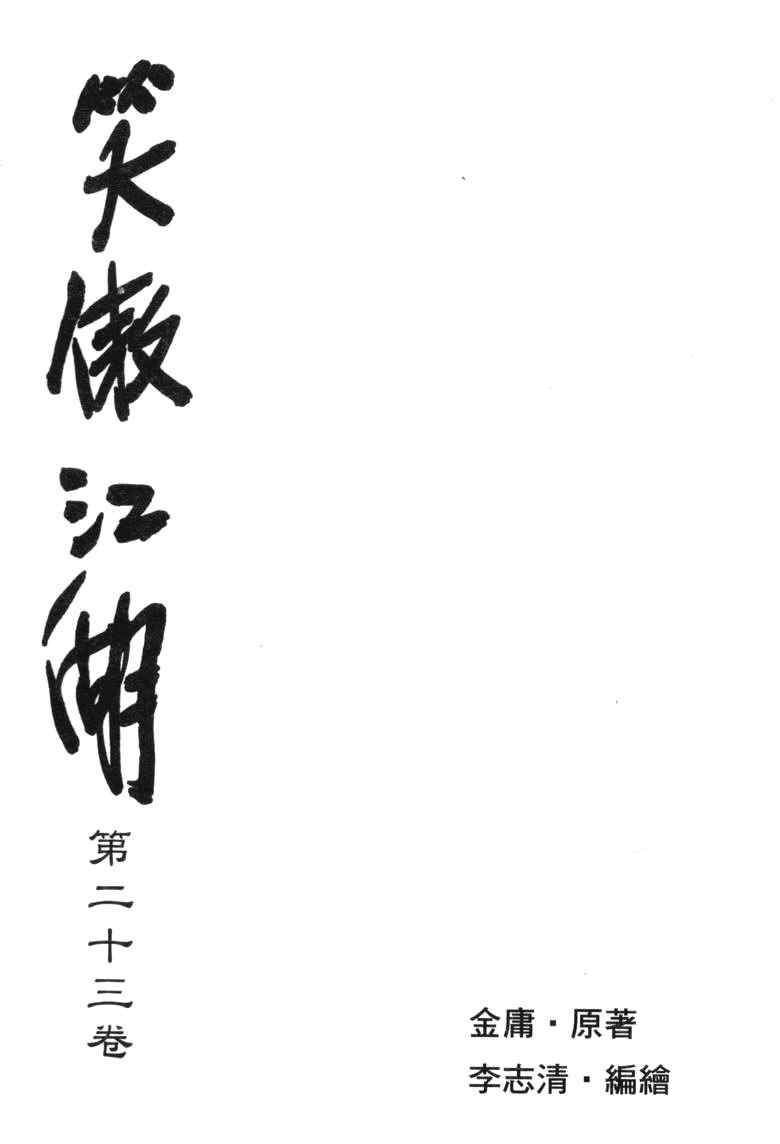 笑傲江湖
第二十三卷
金庸·原著
李志清·編繪